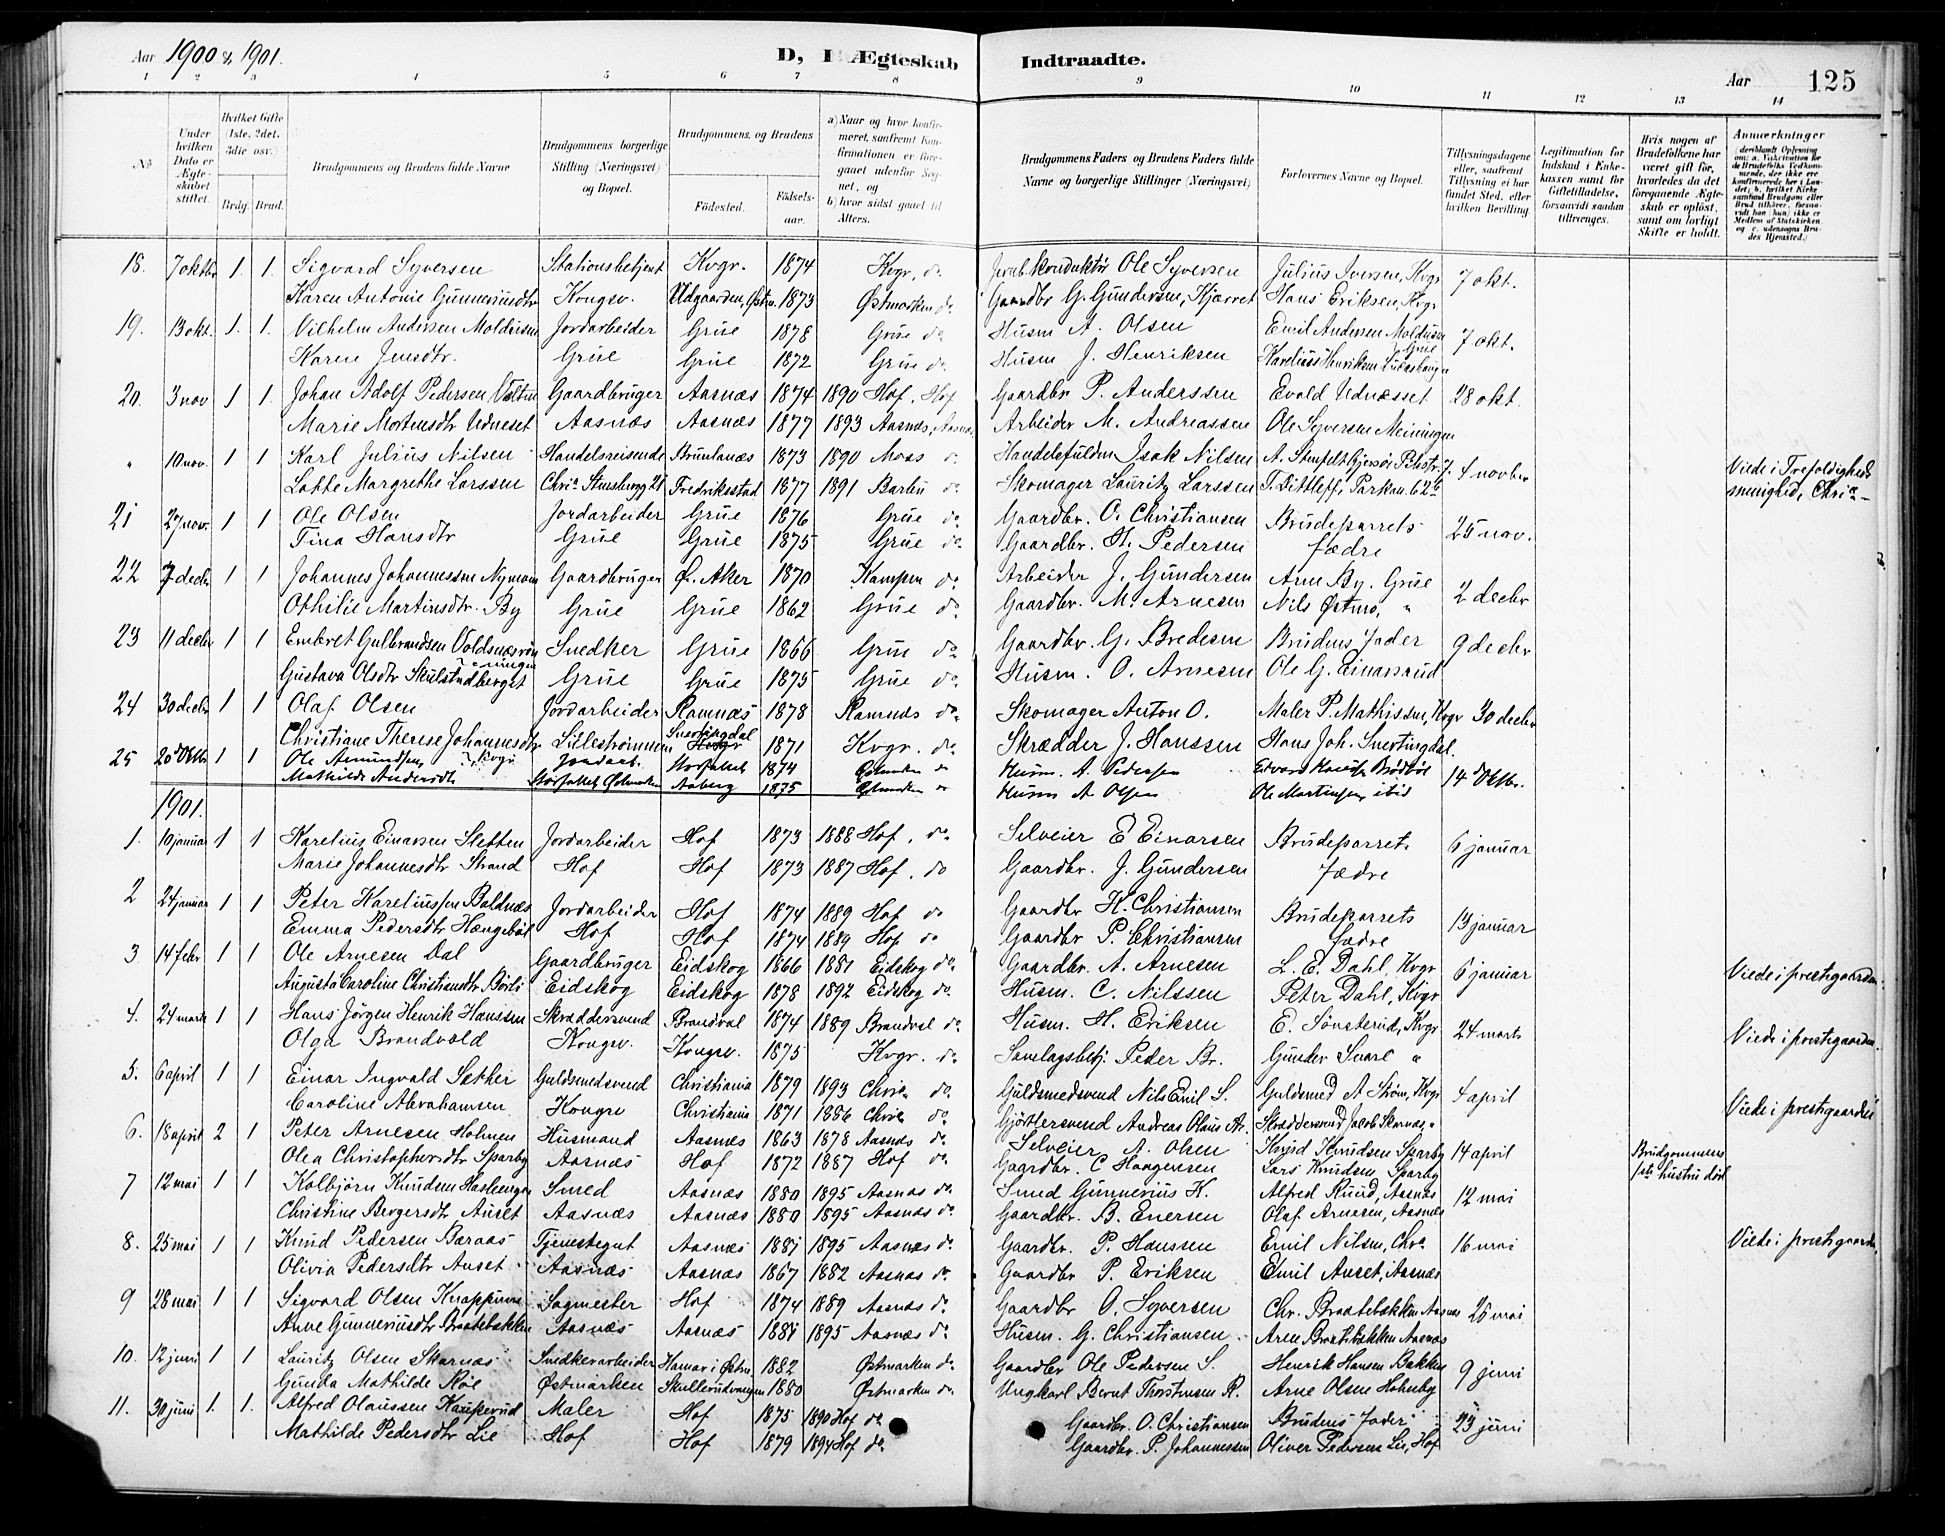 Aar 1900 & 1901.
D, I Ægteskab Indtraadte.
Aar 125
1 2 3 4 5 6 7 8 9 10 11 12 13 14
№
Under hvilken Dato er Ægteskabet stiftet.
Hvilket Gifte (1ste, 2det, 3die osv.)
Brdg. Brud.
Brudgommens og Brudens fulde Navne
Brudgommens borgerlige Stilling (Næringsvei) og Bopæl.
Brudgommens og Brudens
Fødested.
Fødselsaar.
a) Naar og hvor konfirmeret, saafremt Konfirmationen er foregaaet udenfor Sognet, og
b) hvor sidst gaaet til Alters.
Brudgommens Faders og Brudens Faders fulde Navne og borgerlige Stillinger (Næringsvei)
Forlovernes Navne og Bopæl.
Tillysningsdagene eller, saafremt Tillysning ei har fundet Sted, efter hvilken Bevilling
Legitimation for Indskud i Enkekassen samt for Giftetilladelse, forsaavidt saadan tiltrænges.
Hvis nogen af Brudefolkene har været gift før, hvorledes da det foregaaende Ægteskab er opløst, samt om lovligt Skifte er holdt.
Anmærkninger
18. 7 oktbr 1. 1. Sigvard Syversen Stationsbetjent Kvgr. 1874 Kvgr. do Jernb.konduktör Ole Syversen Julius Iversen, Kvgr 7 okt.
Karen Antonie Gunneriusdtr Kongsv. Udgaarden, Østm. 1873 Østmarken do Gaardbr G. Gundersen, Kjærret Hans Eriksen, Kvgr
19. 13 okt. 1. 1. Vilhelm Andersen Moldusen Jordarbeider Grue 1878 Grue do Husm A. Olsen Emil Andersen Moldusen Grue 7 okt.
Karen Jensdtr. Grue Grue 1872 Grue do Husm J. Henriksen Karelius Henriksen
20. 3 nov 1 1. Johan Adolf Pedersen Gaardbruger Aasnæs 1874 1890 Hof, Hof Gaardbr P. Anderssen Evald Udnæsset 28 okt.
Marie Mortensdtr Udneset Aasnæs Aasnæs 1877 1893 Aasnæs, Aasnæs Arbeider M. Andreassen Ole Syversen Meiningen
" 10 nov. 1 1 Karl Julius Nilsen Handelsreisende Brunlanæs 1873 1890 Moss do Handelsfuldm Isak Nilsen 4 novbr Viede i Trefoldigheds
Lotte Margrethe Larssen Chria Fredriksstad 1877 1891 Barbu do Skomager Lauritz Larssen T. Dittleff, Parkvn. 62 b menighed, Chria
21 27 nov. 1 1 Ole Olsen Jordarbeider Grue 1876 Grue do Gaardbr. O. Christiansen Brudeparrets 25 nov.
Tina Hansdtr Grue Grue 1875 Grue do Gaardbr. H. Pedersen fædre
22 7 decbr 1 1 Johannes Johannessen Nyman Gaardbruger Ø. Aker 1870 Kampen do Arbeider J. Gundersen Arne By, Grue 2 decbr
Othilie Martinsdtr. By Grue Grue 1862 Grue do Gaardbr. M. Arnesen Nils Østmo, "
23 11 decbr 1 1 Embret Gulbrandsen Snedker Grue 1866 Grue do Gaardbr. G. Bredesen Brudens Fader 9 decbr
Gustava Olsdtr Skulstadberget Grue Grue 1875 Grue do Husm. O. Arnesen Ole G. Einarsrud
24 30 decbr 1 1 Olaf Olsen Jordarbeider Ramnæs 1878 Ramnæs do Skomager Anton O. Maler P. Mathissen, Kvgr 30 decbr
Christiane Therese Johannesdtr Lillestrømmen Snertingdal 1871 Kvgr. do Skrædder J. Hanssen Hans Joh. Snertingdal.
25 20 Oktbr 1 1 Ole Amundsen Jordarb. 1874 Østmarken do Husm. A. Pedersen 14 Oktbr.
Mathilde Andersdtr Aaberg 1875 Østmarken do Husm A Olsen Ole Martinsen ibid
1901.
1. 10 januar 1 1 Karelius Einarsen Sletten Jordarbeider Hof 1873 1888 Hof, do Selveier E Einarsen Brudeparrets 6 januar
Marie Johannesdtr Strand Hof Hof 1873 1887 Hof, do Gaardbr. J. Gundersen Fædre
2 24 januar 1 1 Peter Kareliussen Baldnæs Jordarbeider Hof 1874 1889 Hof do Gaardbr K. Christiansen Brudeparrets 13 januar
Emma Pedersdtr Hængebøl Hof Hof 1874 1889 Hof do Gaardbr P. Christiansen fædre
3 14 febr 1 1 Ole Arnesen Dal Gaardbruger Eidskog 1866 1881 Eidskog do Gaardbr. A. Arnesen L. E. Dahl, Kvgr 6 januar Viede i prestegaarden.
Augusta Caroline Christiansdtr Børli Eidskog Eidskog 1878 1892 Eidskog do Husm. C. Nilssen Peter Dahl, Kvgr
4. 24 marts 1 1 Hans Jørgen Henrik Hanssen Skræddersvend Brandval 1874 1889 Brandval do Husm. H. Eriksen E. Sønsterud, Kvgr 24 marts Viede i prestegaarden.
Olga Brandvold Kongsv. Kongsv. 1875 Kvgr. do Samlagsbetj. Peder Br. Gunder Snare "
5. 6 april 1 1 Einar Ingvald Sæther Guldsmedsvend Christiania 1879 1893 Chria do Guldsmedsvend Nils Emil S. Guldsmed A Strøm, Kvgr 4 april Viede i prestegaarden
Caroline Abrahamsen Kongsv Christiania 1871 1886 Chria do Gjørtlersvend Andreas Olaus Ab. Skræddersvend Jacob Skarnæs, "
6. 18 april 2 1 Peter Arnesen Holmen Husmand Aasnæs 1863 1878 Aasnæs do Selveier A. Olsen Knud Knudsen Sparby 14 april Brudgommens
Olea Christophersdtr Sparby Aasnæs Hof 1872 1887 Hof do Gaardbr. C Haagensen Lars Knudsen, Sparby 1ste hustru död
7 12 mai 1 1 Kolbjørn Knudsen Haslengen Smed Aasnæs 1880 1895 Aasnæs do Smed Gunnerius K. Alfred Ruud, Aasnæs 12 mai
Christine Bergersdtr Auset Aasnæs Aasnæs 1880 1895 Aasnæs do Gaardbr. B. Enersen Olaf Arnesen, Aasnæs
8. 25 mai 1 1 Knud Pedersen Baraas Tjenestegut Aasnæs 1881 1895 Aasnæs do Gaardbr. P. Hanssen Emil Nilsen, Chra 16 mai Viede i prestegaarden
Olivia Pedersdtr Auset Aasnæs Aasnæs 1867 1882 Aasnæs do Gaardbr P. Eriksen Emil Auset, Aasnæs
9 28 mai 1 1 Sigvard Olsen Knappum Sagmester Hof 1874 1889 Aasnæs do Gaardbr O. Syversen Chr. Braatebækken Aasnæs 26 mai
Anne Gunneriusdtr Braatebækken Aasnæs Aasnæs 1881 1895 Aasnæs do Husm. G. Christiansen Arne Braatebækken Aasnæs
10. 12 juni 1 1 Lauritz Olsen Skarnæs Snedkerarbeider Hamar i Østm. 1882 Østmarken do Gaardbr Ole Pedersen S. Henrik Hansen Bakken 9 juni
Gunda Mathilde Røe Østmarken Skullerudvangen 1880 Østmarken do Ungkarl Bernt Thorstensen R. Arne Olsen Holmby
11. 30 juni 1. 1. Alfred Olaussen Kauserud Maler Hof 1875 1890 Hof do Gaardbr. O. Christiansen Brudens Fader 23 juni
Mathilde Pedersdtr Lie Hof Hof 1879 1894 Hof do Gaardbr. P. Johannessen Oliver Pedersen Lie, Hof